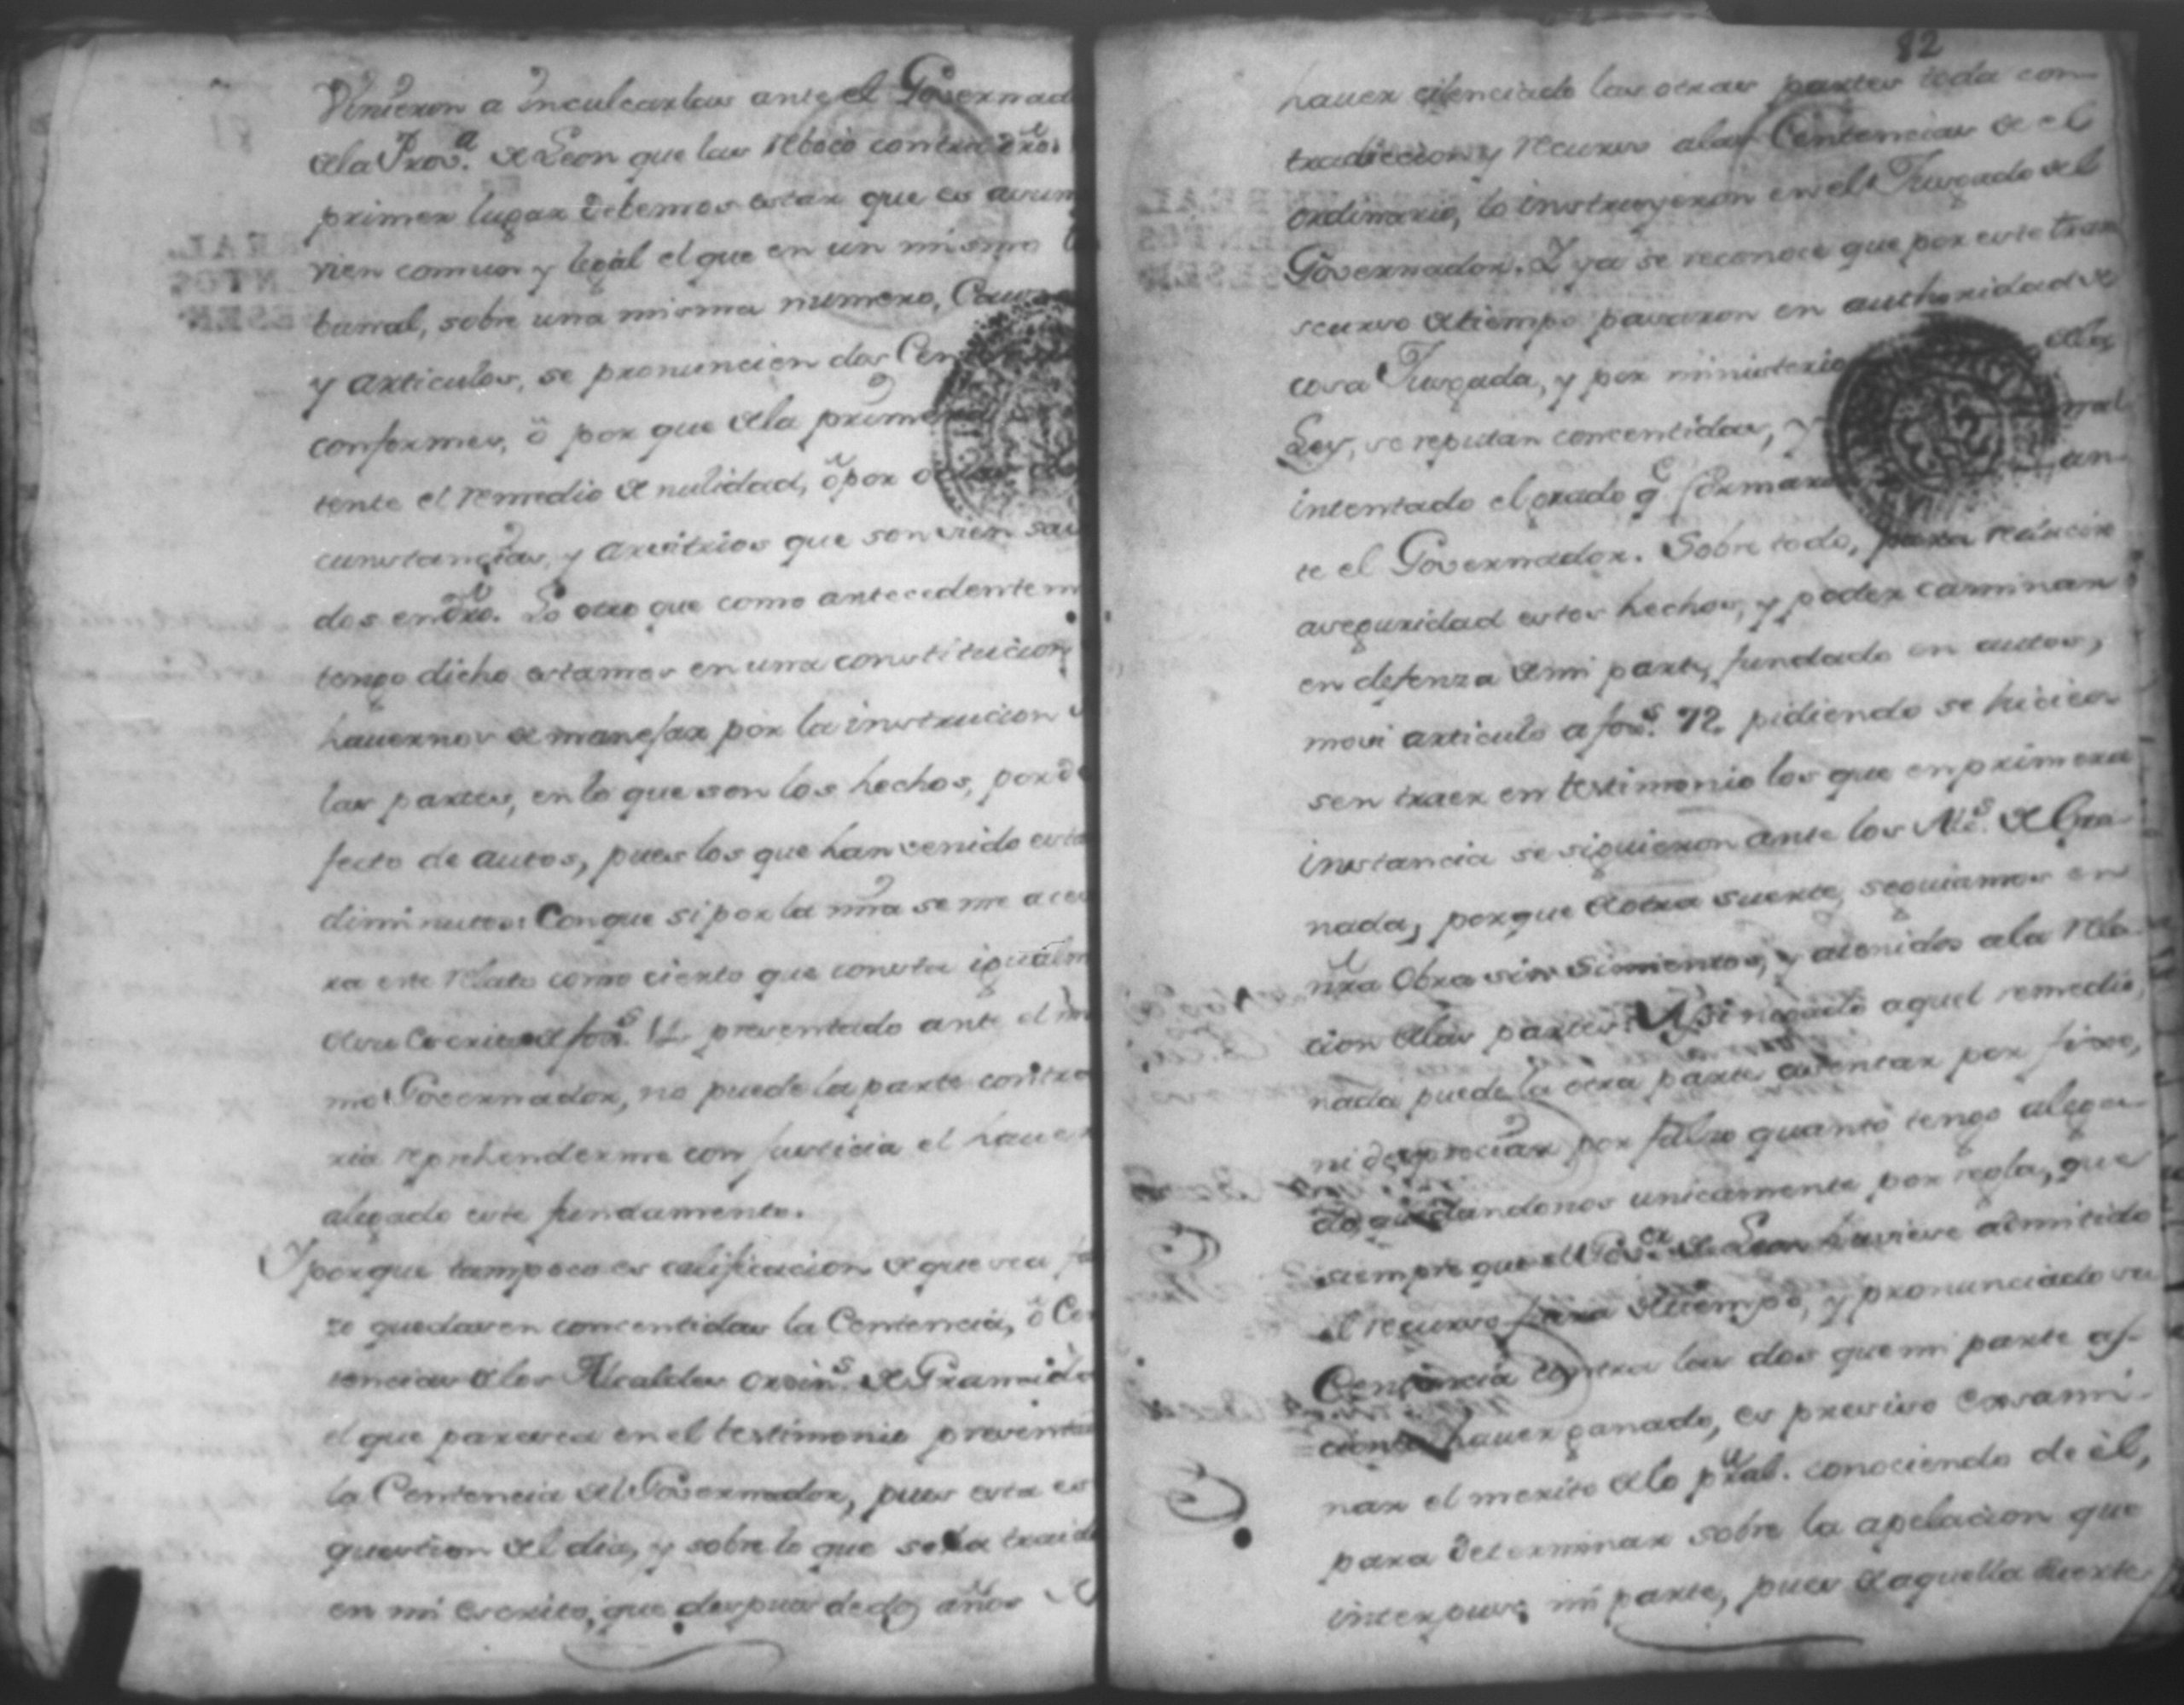 Vinieron a inculcarlas ante el Governad
de la Prov.ª de Leon que las reboco contra dro.
primer lugar debemos estar que es asum
vien comun y legal el que en un mismo
bunal, sobre una misma numero, Causa
y articulos, se pronuncien dos Cen
conformes, ô por que de la prime
tente el remedio de nulidad, ô por
cunstancias, y arvitrios que son vien sav
dos en dro. Lo otro que como antecedentem
tengo dicho estamos en una constitucion
havernos de manejar por la instrucion
las partes, en lo que son los hechos, por de
fecto de autos, pues los que han venido esta
diminutos: Conque si por la mia se me aces
ra este relato como cierto que consta igualm
de su Escrito de foxs. 12 presentado ante el mis
mo Governador, no puede la parte contra
ria reprehenderme con justicia el haver
alegado este fundamento.
Y porque tampoco es calificacion de que sea fal
zo quedasen concentidas la Centencia, ô Cen
tencias de los Alcaldes ordin.s de Granada
el que paresca en el testimonio presentad
la Centencia del Governador, pues esta es
question del dia, y sobre lo que se ha traido
en mi escrito, que despues de dos años
82
haver cilenciado las otras partes toda con-
tradiccion y recurso a las Centencias de el
ordinario, lo instruyeron en el Jusgado del
Governador. Y ya se reconoce que por este tran
scurso de tiempo pasaron en authoridad de
cosa Jusgada, y por ministerio de la
Ley, se reputan concentidas, y
intentado el grado q.e formaro an-
te el Governador. Sobre todo, para reducir
a seguridad estos hechos, y poder caminar
en defenza de mi parte, fundado en autos,
movi articulo a foxs. 72. pidiendo se hicie-
sen traer en testimonio los que en primera
instancia se siguieron ante los Alc.s de Gra-
nada, porque de otra suerte, seguiamos en
nra Obra sin simientos, y atenidos a la rela-
cion de las partes: Y si negado aquel remedio,
nada puede la otra parte asentar por fixo,
ni despreciar por falso quanto tengo alega-
do, quedandonos unicamente por regla, que
siempre que el Gov.or de Leon huviese admitido
el recurso fuera de tiempo, y pronunciado su
Centencia contra las dos que mi parte af-
ciona haver ganado, es presiso exsami-
nar el merito de lo pral. conociendo de èl,
para determinar sobre la apelacion que
interpuso mi parte, pues de aquella suerte